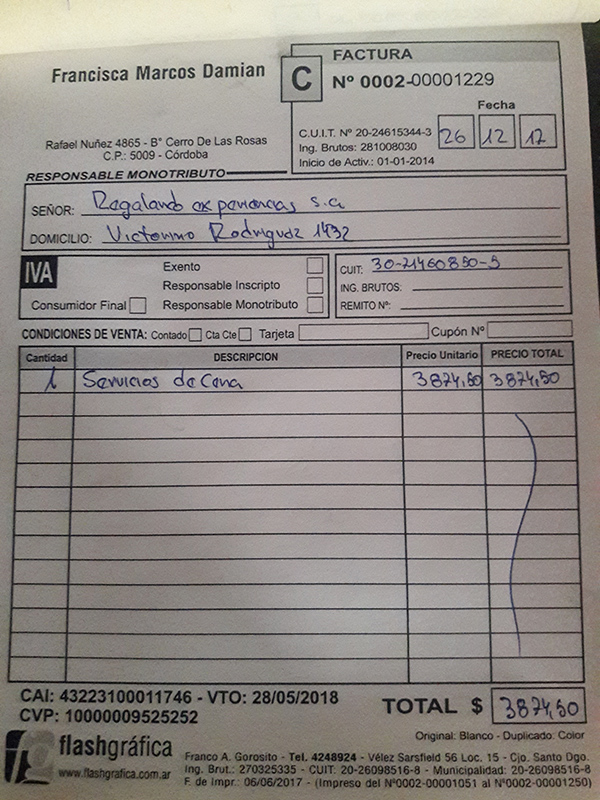 Francisca Marcos Damian
Rafael Nuñez 4865 - B° Cerro De Las Rosas
C.P.: 5009 - Córdoba
RESPONSABLE MONOTRIBUTO
C
FACTURA
Nº 0002-00001229
Fecha
26 12 17
C.U.I.T. Nº 20-24615344-3
Ing. Brutos: 281008030
Inicio de Activ.: 01-01-2014
SEÑOR: Regalando experiencias s.a
DOMICILIO: Victorino Rodriguez 1432
IVA
Exento
Responsable Inscripto
Consumidor Final
Responsable Monotributo
CUIT: 30-71460850-5
ING. BRUTOS:
REMITO Nº:
CONDICIONES DE VENTA: Contado Cta Cte Tarjeta Cupón Nº
Cantidad DESCRIPCION Precio Unitario PRECIO TOTAL
1 Servicios de Cena 3874,50 3874,50
CAI: 43223100011746 - VTO: 28/05/2018
CVP: 10000009525252
TOTAL $ 3874,50
Original: Blanco - Duplicado: Color
flashgráfica
www.flashgrafica.com.ar
Franco A. Gorosito - Tel. 4248924 - Vélez Sarsfield 56 Loc. 15 - Cjo. Santo Dgo.
Ing. Brut.: 270325335 - CUIT: 20-26098516-8 - Municipalidad: 20-26098516-8
F. de Impr.: 06/06/2017 - (Impreso del Nº0002-00001051 al Nº0002-00001250)